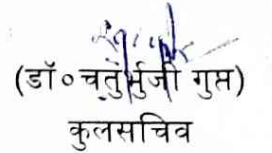 (डॉ० चतुर्भुजी गुप्त)
कुलसचिव